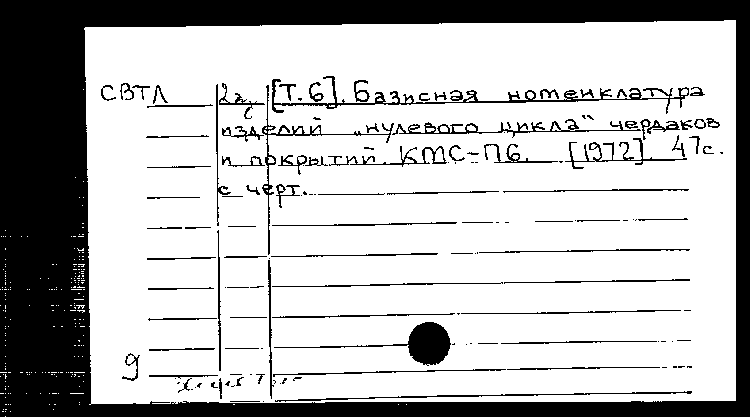 СВТЛ [Т.6]. Базисная номенклатура
изделий „нулевого цикла“ чердаков
и покрытий. КМС-П6. [1972]. 47с.
с черт.
9